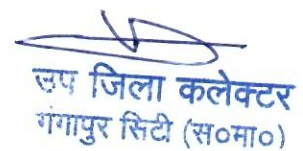 उप जिला कलेक्टर
गंगापुर सिटी (स०मा०)